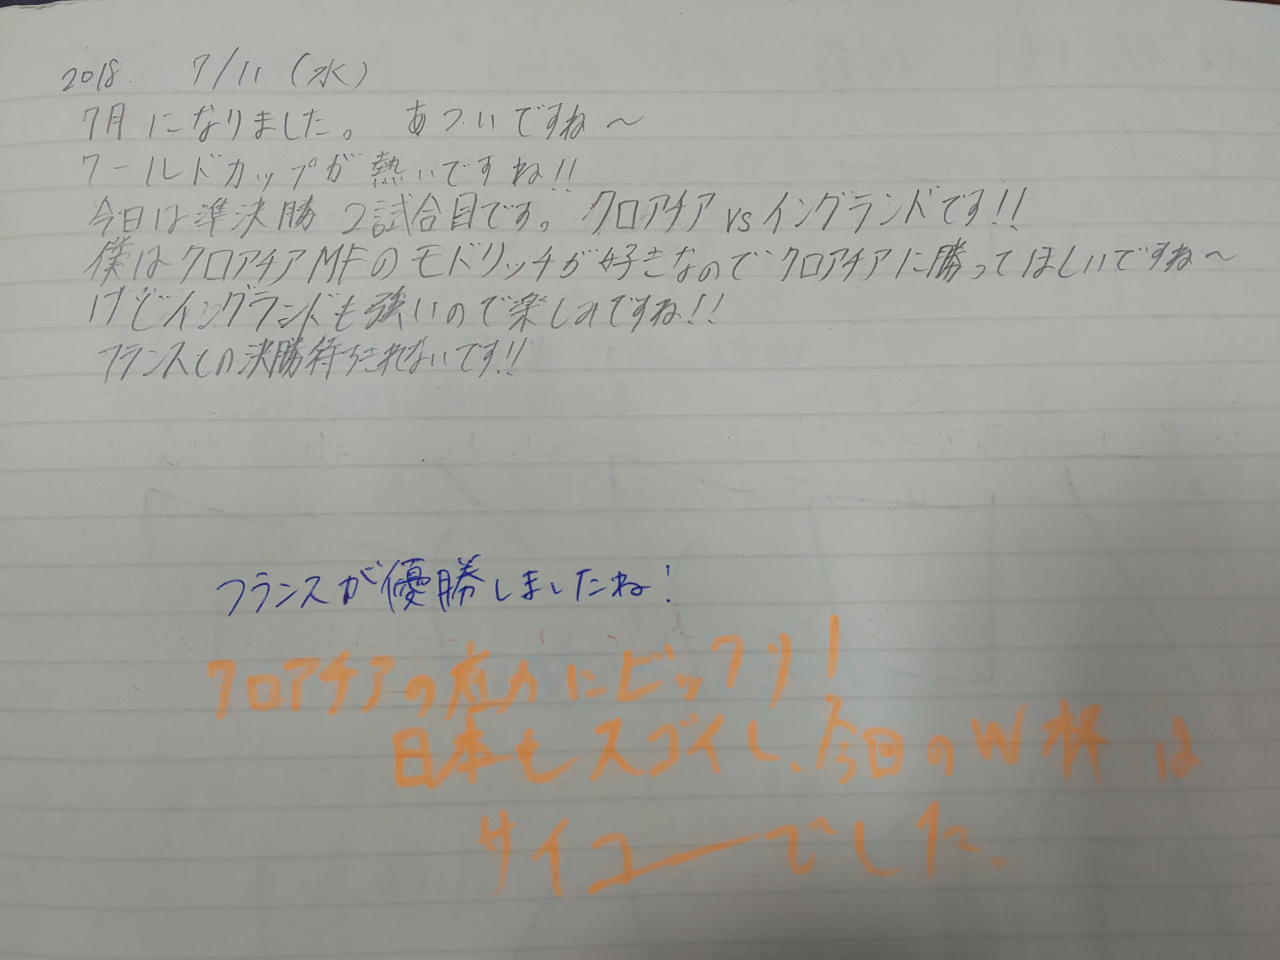 2018. 7/11 (水)
7月になりました。 あついですね〜
ワールドカップが熱いですね!!
今日は準決勝 2試合目です。 クロアチア vs イングランドです!!
僕はクロアチアMFのモドリッチが好きなのでクロアチアに勝ってほしいですね〜
けどイングランドも強いので楽しみですね!!
フランスとの決勝待ちきれないです!!
フランスが優勝しましたね!
クロアチアの底力にビックリ!
日本もスゴイし、今日のW杯は
サイコーでした。